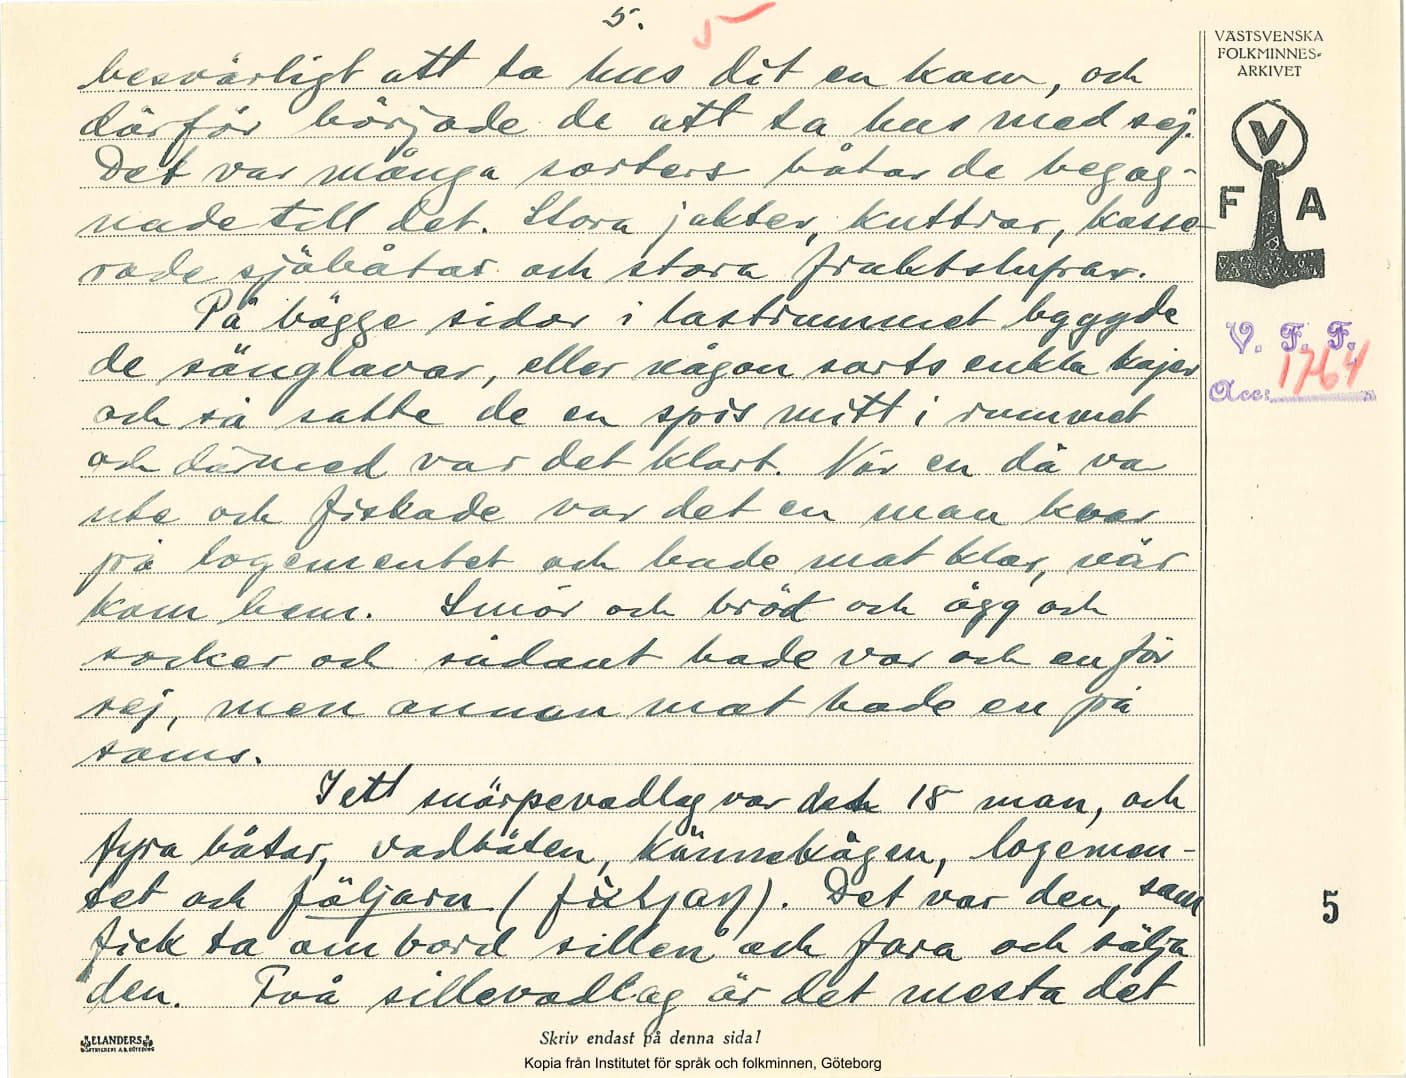 5.
5
VÄSTSVENSKA
FOLKMINNES-
ARKIVET
V
F A
V. F. F.
Acc: 1764
besvärligt att ta hus dit en kom, och
därför började de att ta hus med sej.
Det var många sorters båtar de begag-
nade till det. Stora jakter, kuttrar, kasse-
rade sjöbåtar och stora fraktslupar.
På bägge sidor i lastrummet byggde
de sänglavar, eller någon sorts enkla kojer
och så satte de en spis mitt i rummet
och därmed var det klart. När en då va
ute och fiskade var det en man kvar
på logementet och hade mat klar, när
kom hem. Smör och bröd och ägg och
socker och sådant hade var och en för
sej, men annan mat hade en på
sams.
I ett snörpevadlag var det 18 man, och
fyra båtar, vadbåten, kännekågen, logemen-
tet och följarn ( ). Det var den, som
fick ta ombord sillen och fara och sälja
den. Två sillevadlag är det mesta det
5
ELANDERS
Skriv endast på denna sida!
Kopia från Institutet för språk och folkminnen, Göteborg